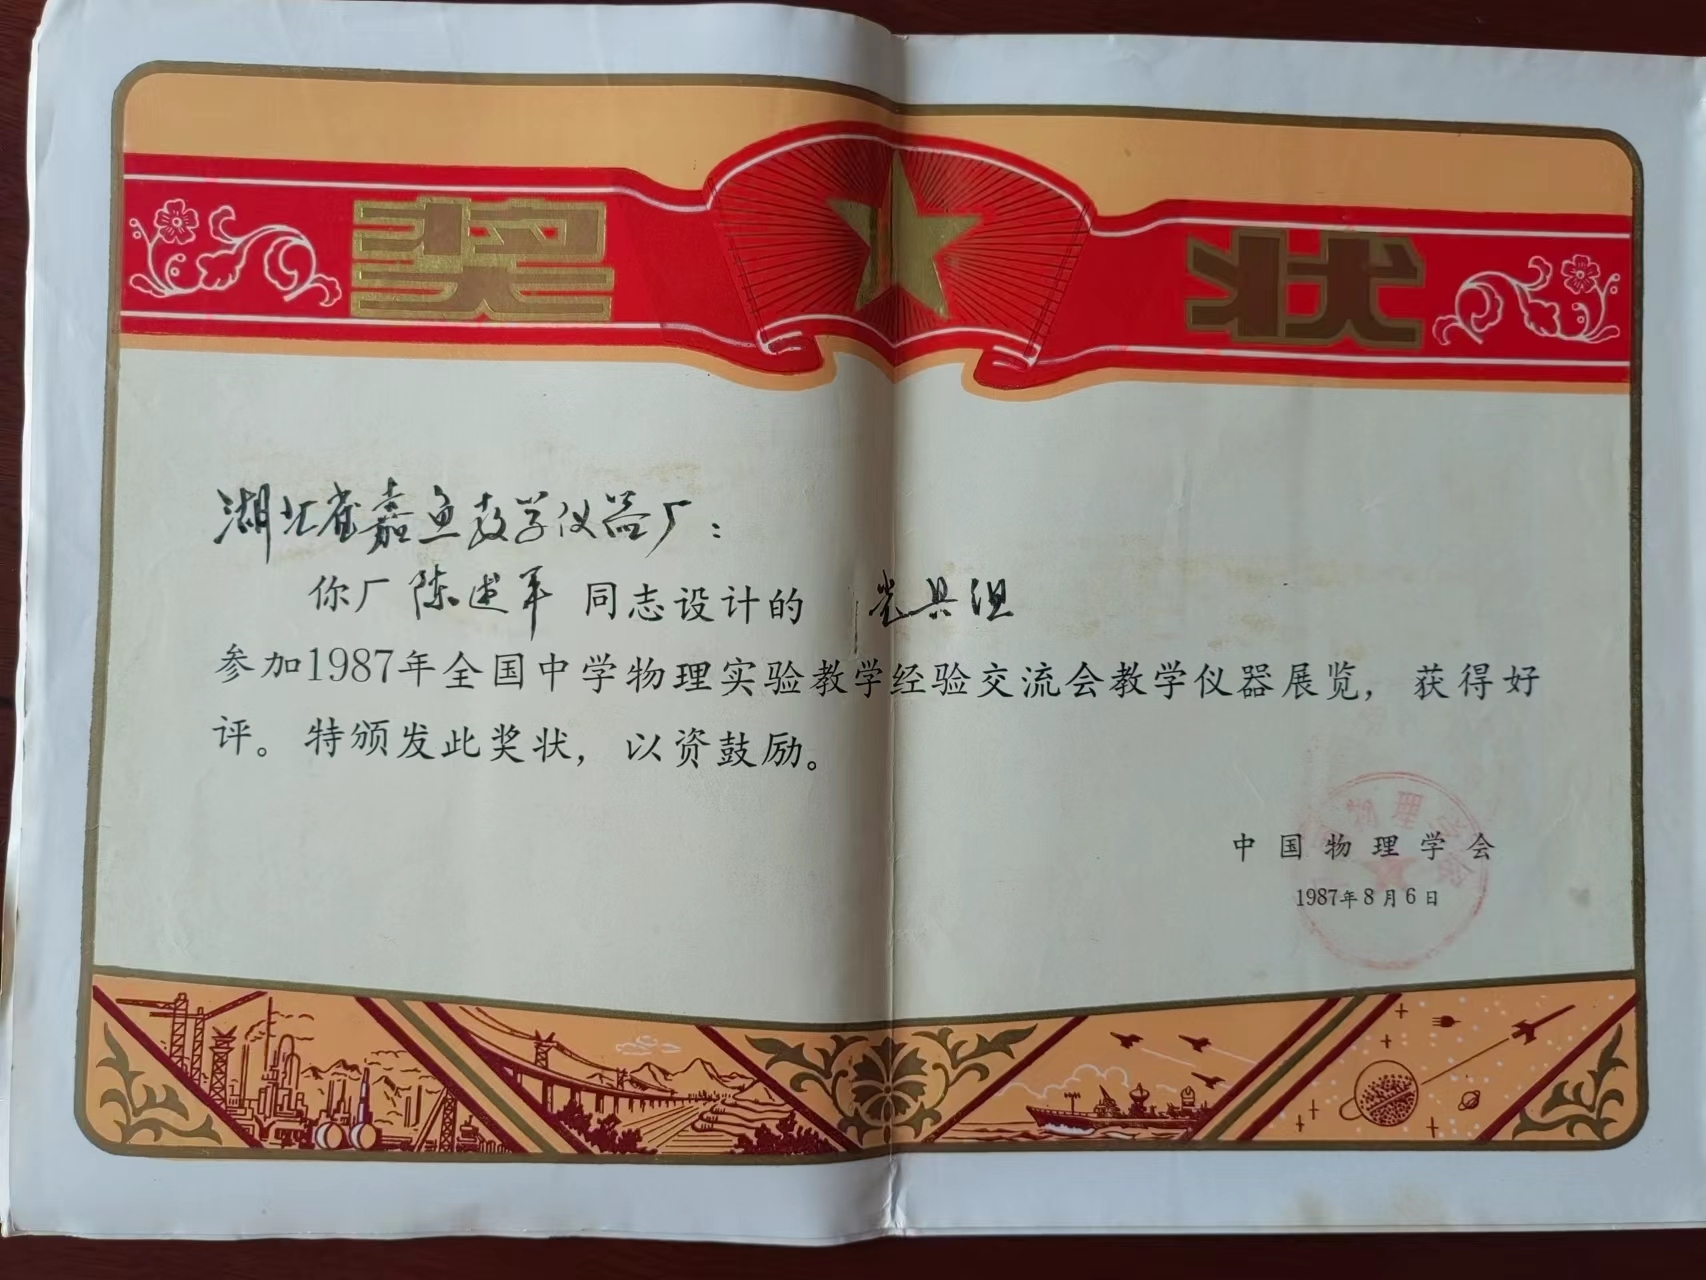 奖状
湖北省嘉鱼教学仪器厂：
你厂陈述军同志设计的 光具组
参加1987年全国中学物理实验教学经验交流会教学仪器展览，获得好
评。特颁发此奖状，以资鼓励。
中国物理学会
1987年8月6日
物理学会